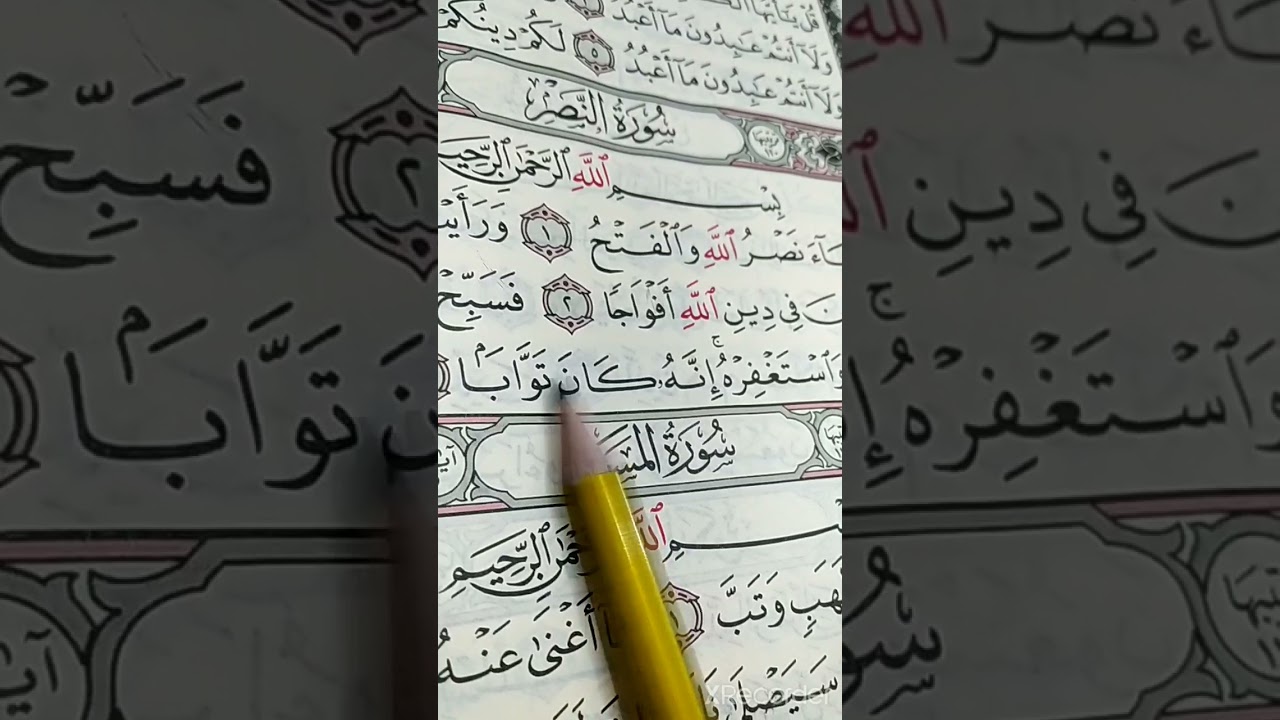 قُلْ يَٰٓأَيُّهَا
وَلَآ أَنتُمْ عَٰبِدُونَ مَآ أَعْبُدُ
وَلَآ أَنتُمْ عَٰبِدُونَ مَآ أَعْبُدُ ٥ لَكُمْ دِينُكُمْ
سُورَةُ النَّصْرِ
بِسْمِ ٱللَّهِ ٱلرَّحْمَٰنِ ٱلرَّحِيمِ
آءَ نَصْرُ ٱللَّهِ وَٱلْفَتْحُ ١ وَرَأَيْ
نَ فِى دِينِ ٱللَّهِ أَفْوَاجًا ٢ فَسَبِّحْ
وَٱسْتَغْفِرْهُ ۚ إِنَّهُۥ كَانَ تَوَّابَۢا
سُورَةُ المَسَ
سْمِ ٱللَّهِ ٱلرَّحْمَٰنِ ٱلرَّحِيمِ
لَهَبٍ وَتَبَّ ١ مَآ أَغْنَىٰ عَنْهُ
سَيَصْلَىٰ
XRecorder